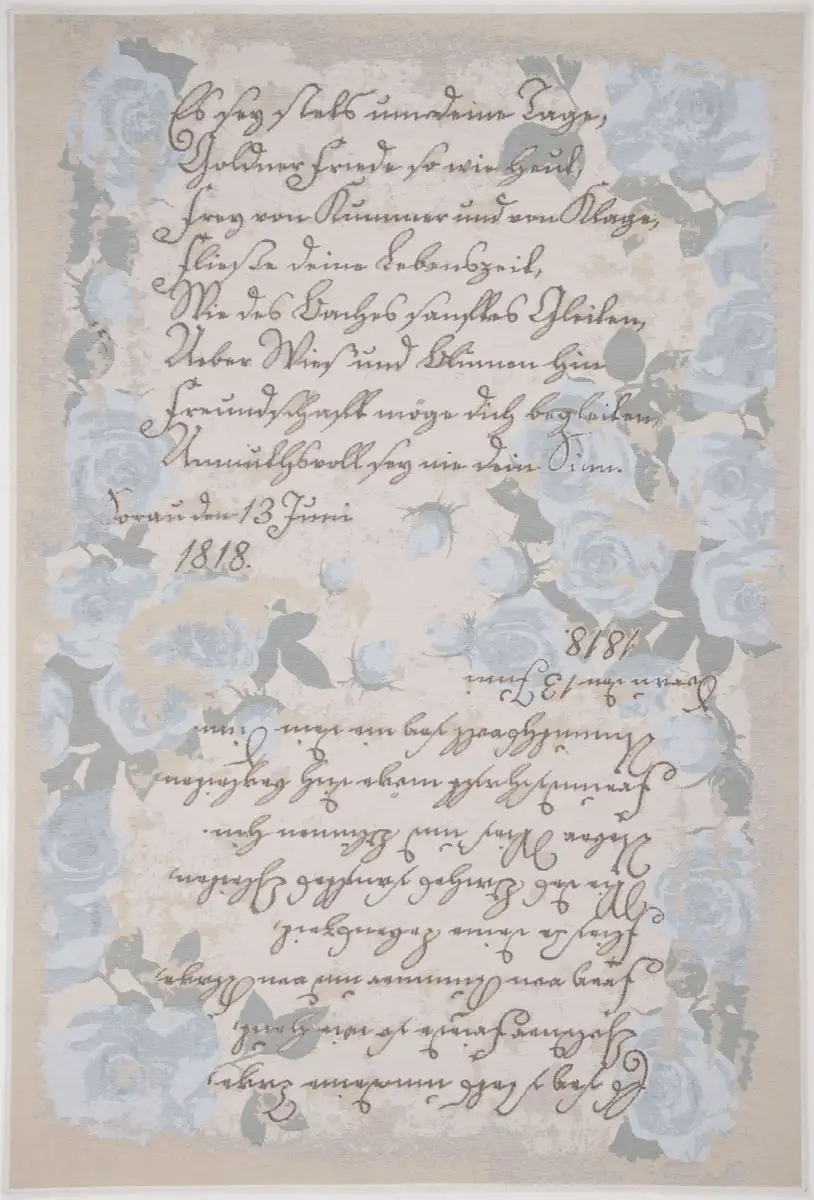 Es sey stets um deine Tage,
Goldner Friede so wie Heut,
Frey von Kummer und von Klage,
Fließe deine Lebenszeit,
Wie des Baches sanftes Gleiten,
Ueber Wies' und Blumen hin
Freundschafft möge dich begleiten,
Unmuthsvoll sey nie dein Sinn.
Sorau den 13 Juni
1818.
1818.
Sorau den 13 Juni
Unmuthsvoll sey nie dein Sinn.
Freundschafft möge dich begleiten,
Ueber Wies' und Blumen hin.
Wie des Baches sanftes Gleiten,
Fließe deine Lebenszeit,
Frey von Kummer und von Klage,
Goldner Friede so wie Heut,
Es sey stets um deine Tage,